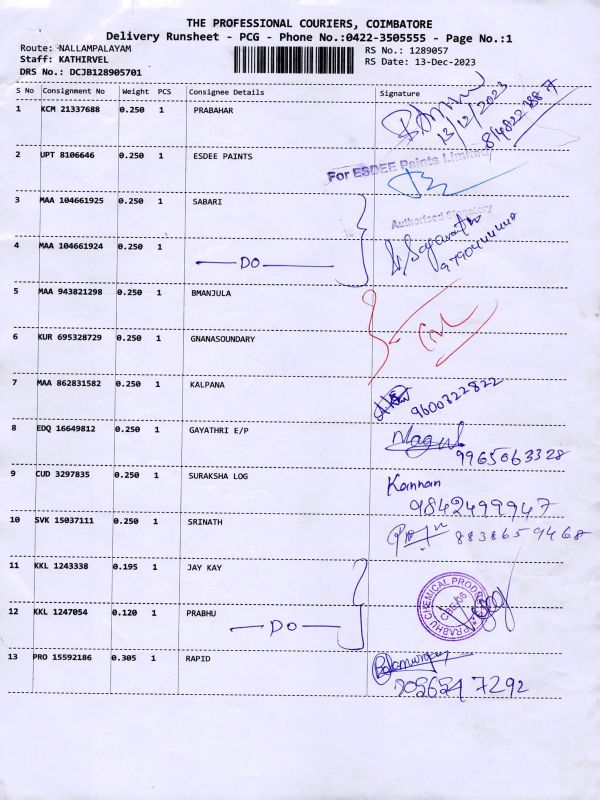 THE PROFESSIONAL COURIERS, COIMBATORE
Delivery Runsheet - PCG - Phone No.:0422-3505555 - Page No.:1
Route: NALLAMPALAYAM RS No.: 1289057
Staff: KATHIRVEL RS Date: 13-Dec-2023
DRS No.: DCJB128905701
S No Consignment No Weight PCS Consignee Details Signature
1 KCM 21337688 0.250 1 PRABAHAR
13/12/2023
2 UPT 8106646 0.250 1 ESDEE PAINTS
For ESDEE Paints Limited
3 MAA 104661925 0.250 1 SABARI
Authorised Signatory
4 MAA 104661924 0.250 1
DO
5 MAA 943821298 0.250 1 BMANJULA
6 KUR 695328729 0.250 1 GNANASOUNDARY
7 MAA 862831582 0.250 1 KALPANA
9600322822
8 EDQ 16649812 0.250 1 GAYATHRI E/P
9965063328
9 CUD 3297835 0.250 1 SURAKSHA LOG Kannan
9842499947
10 SVK 15037111 0.250 1 SRINATH 8838659468
11 KKL 1243338 0.195 1 JAY KAY
12 KKL 1247054 0.120 1 PRABHU
DO
PRABHU CHEMICAL
13 PRO 15592186 0.305 1 RAPID